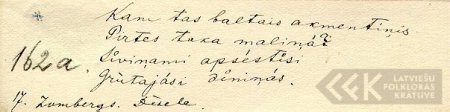 Kam tas baltais akmentiņis
Pirtes taka maliņā?
162a. Sivinami apsestīsi
Grūtajāsi dēniņās.
17. Zombergs. Dūsele.
LATVIEŠU
FOLKLORAS
KRĀTUVE